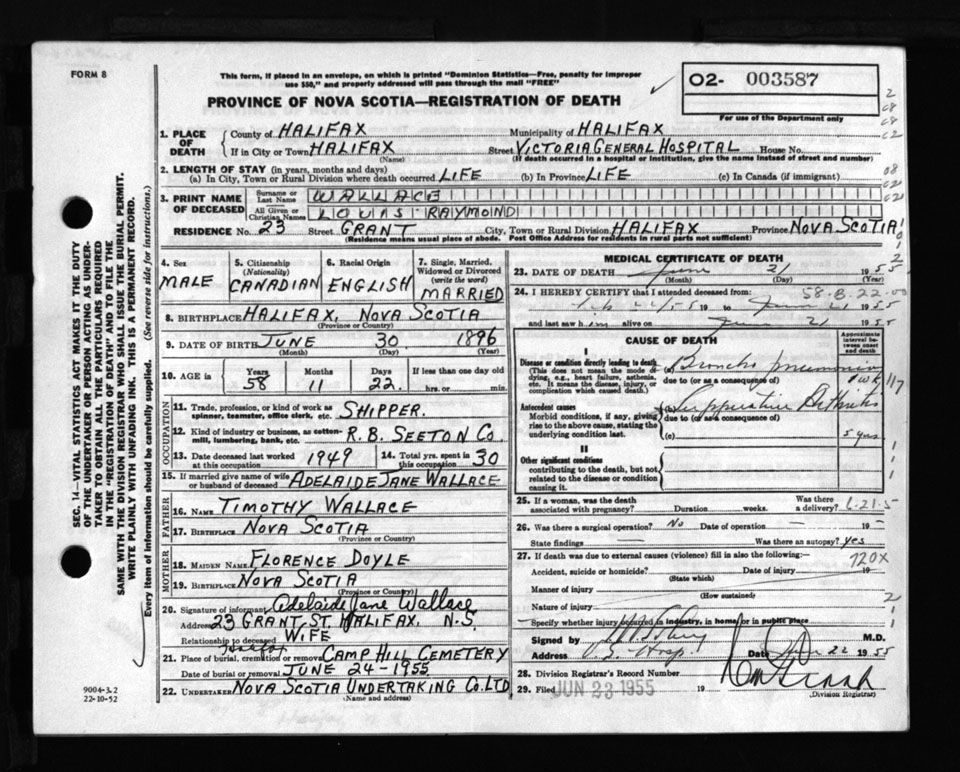 FORM 8
This form, if placed in an envelope, on which is printed "Dominion Statistics—Free, penalty for improper
use $50," and properly addressed will pass through the mail "FREE"
O2- 003587
For use of the Department only
PROVINCE OF NOVA SCOTIA—REGISTRATION OF DEATH
1. PLACE OF DEATH
County of HALIFAX Municipality of HALIFAX
If in City or Town HALIFAX Street VICTORIA GENERAL HOSPITAL House No.
(Name) (If death occurred in a hospital or institution, give the name instead of street and number)
2. LENGTH OF STAY (in years, months and days)
(a) In City, Town or Rural Division where death occurred LIFE (b) In Province LIFE (c) In Canada (if immigrant)
3. PRINT NAME OF DECEASED
Surname or Last Name WALLACE
All Given or Christian Names LOUIS RAYMOND
RESIDENCE No. 23 Street GRANT City, Town or Rural Division HALIFAX Province NOVA SCOTIA
(Residence means usual place of abode. Post Office Address for residents in rural parts not sufficient)
4. Sex MALE
5. Citizenship (Nationality) CANADIAN
6. Racial Origin ENGLISH
7. Single, Married, Widowed or Divorced (write the word) MARRIED
8. BIRTHPLACE HALIFAX, NOVA SCOTIA
(Province or Country)
9. DATE OF BIRTH JUNE 30 1896
(Month) (Day) (Year)
10. AGE in Years 58 Months 11 Days 22. If less than one day old hrs. or min.
OCCUPATION
11. Trade, profession, or kind of work as spinner, teamster, office clerk, etc. SHIPPER.
12. Kind of industry or business, as cotton-mill, lumbering, bank, etc. R. B. SEETON CO.
13. Date deceased last worked at this occupation 1949
14. Total yrs. spent in this occupation 30
15. If married give name of wife or husband of deceased ADELAIDE JANE WALLACE
FATHER
16. NAME TIMOTHY WALLACE
17. BIRTHPLACE NOVA SCOTIA
(Province or Country)
MOTHER
18. MAIDEN NAME FLORENCE DOYLE
19. BIRTHPLACE NOVA SCOTIA
(Province or Country)
20. Signature of informant Adelaide Jane Wallace
Address 23 GRANT ST. HALIFAX. N.S.
Relationship to deceased WIFE
Halifax
21. Place of burial, cremation or removal CAMP HILL CEMETERY
Date of burial or removal JUNE 24-1955
22. UNDERTAKER NOVA SCOTIA UNDERTAKING CO. LTD
(Name and address)
MEDICAL CERTIFICATE OF DEATH
23. DATE OF DEATH June 21 1955
(Month) (Day) (Year)
24. I HEREBY CERTIFY that I attended deceased from:
58-8-22-
19 to 1955
and last saw him alive on June 21 1955
CAUSE OF DEATH
Approximate interval between onset and death
I
Disease or condition directly leading to death
(This does not mean the mode of dying, e.g., heart failure, asthma, etc. It means the disease, injury, or complication which caused death.)
(a) Broncho pneumonia
due to (or as a consequence of) 1 wk
Antecedent causes
Morbid conditions, if any, giving rise to the above cause, stating the underlying condition last.
(b) Suppurative Arthritis
due to (or as a consequence of)
(c) 5 yrs
II
Other significant conditions
contributing to the death, but not related to the disease or condition causing it.
25. If a woman, was the death associated with pregnancy? Duration weeks. Was there a delivery?
6-21-5
26. Was there a surgical operation? No Date of operation — 19 —
State findings — Was there an autopsy? yes
27. If death was due to external causes (violence) fill in also the following:—
720X
Accident, suicide or homicide? Date of injury 19
(State which)
Manner of injury
(How sustained)
Nature of injury
Specify whether injury occurred in industry, in home or in public place
Signed by M.D.
Address V.G. Hosp. Date June 22 1955
28. Division Registrar's Record Number
29. Filed JUN 23 1955 19
(Division Registrar)
SEC. 14—VITAL STATISTICS ACT MAKES IT THE DUTY
OF THE UNDERTAKER OR PERSON ACTING AS UNDER-
TAKER TO OBTAIN ALL THE PARTICULARS REQUIRED
IN THE "REGISTRATION OF DEATH" AND TO FILE THE
SAME WITH THE DIVISION REGISTRAR WHO SHALL ISSUE THE BURIAL PERMIT.
WRITE PLAINLY WITH UNFADING INK. THIS IS A PERMANENT RECORD.
Every item of information should be carefully supplied. (See reverse side for instructions.)
9004-3.2
22-10-52